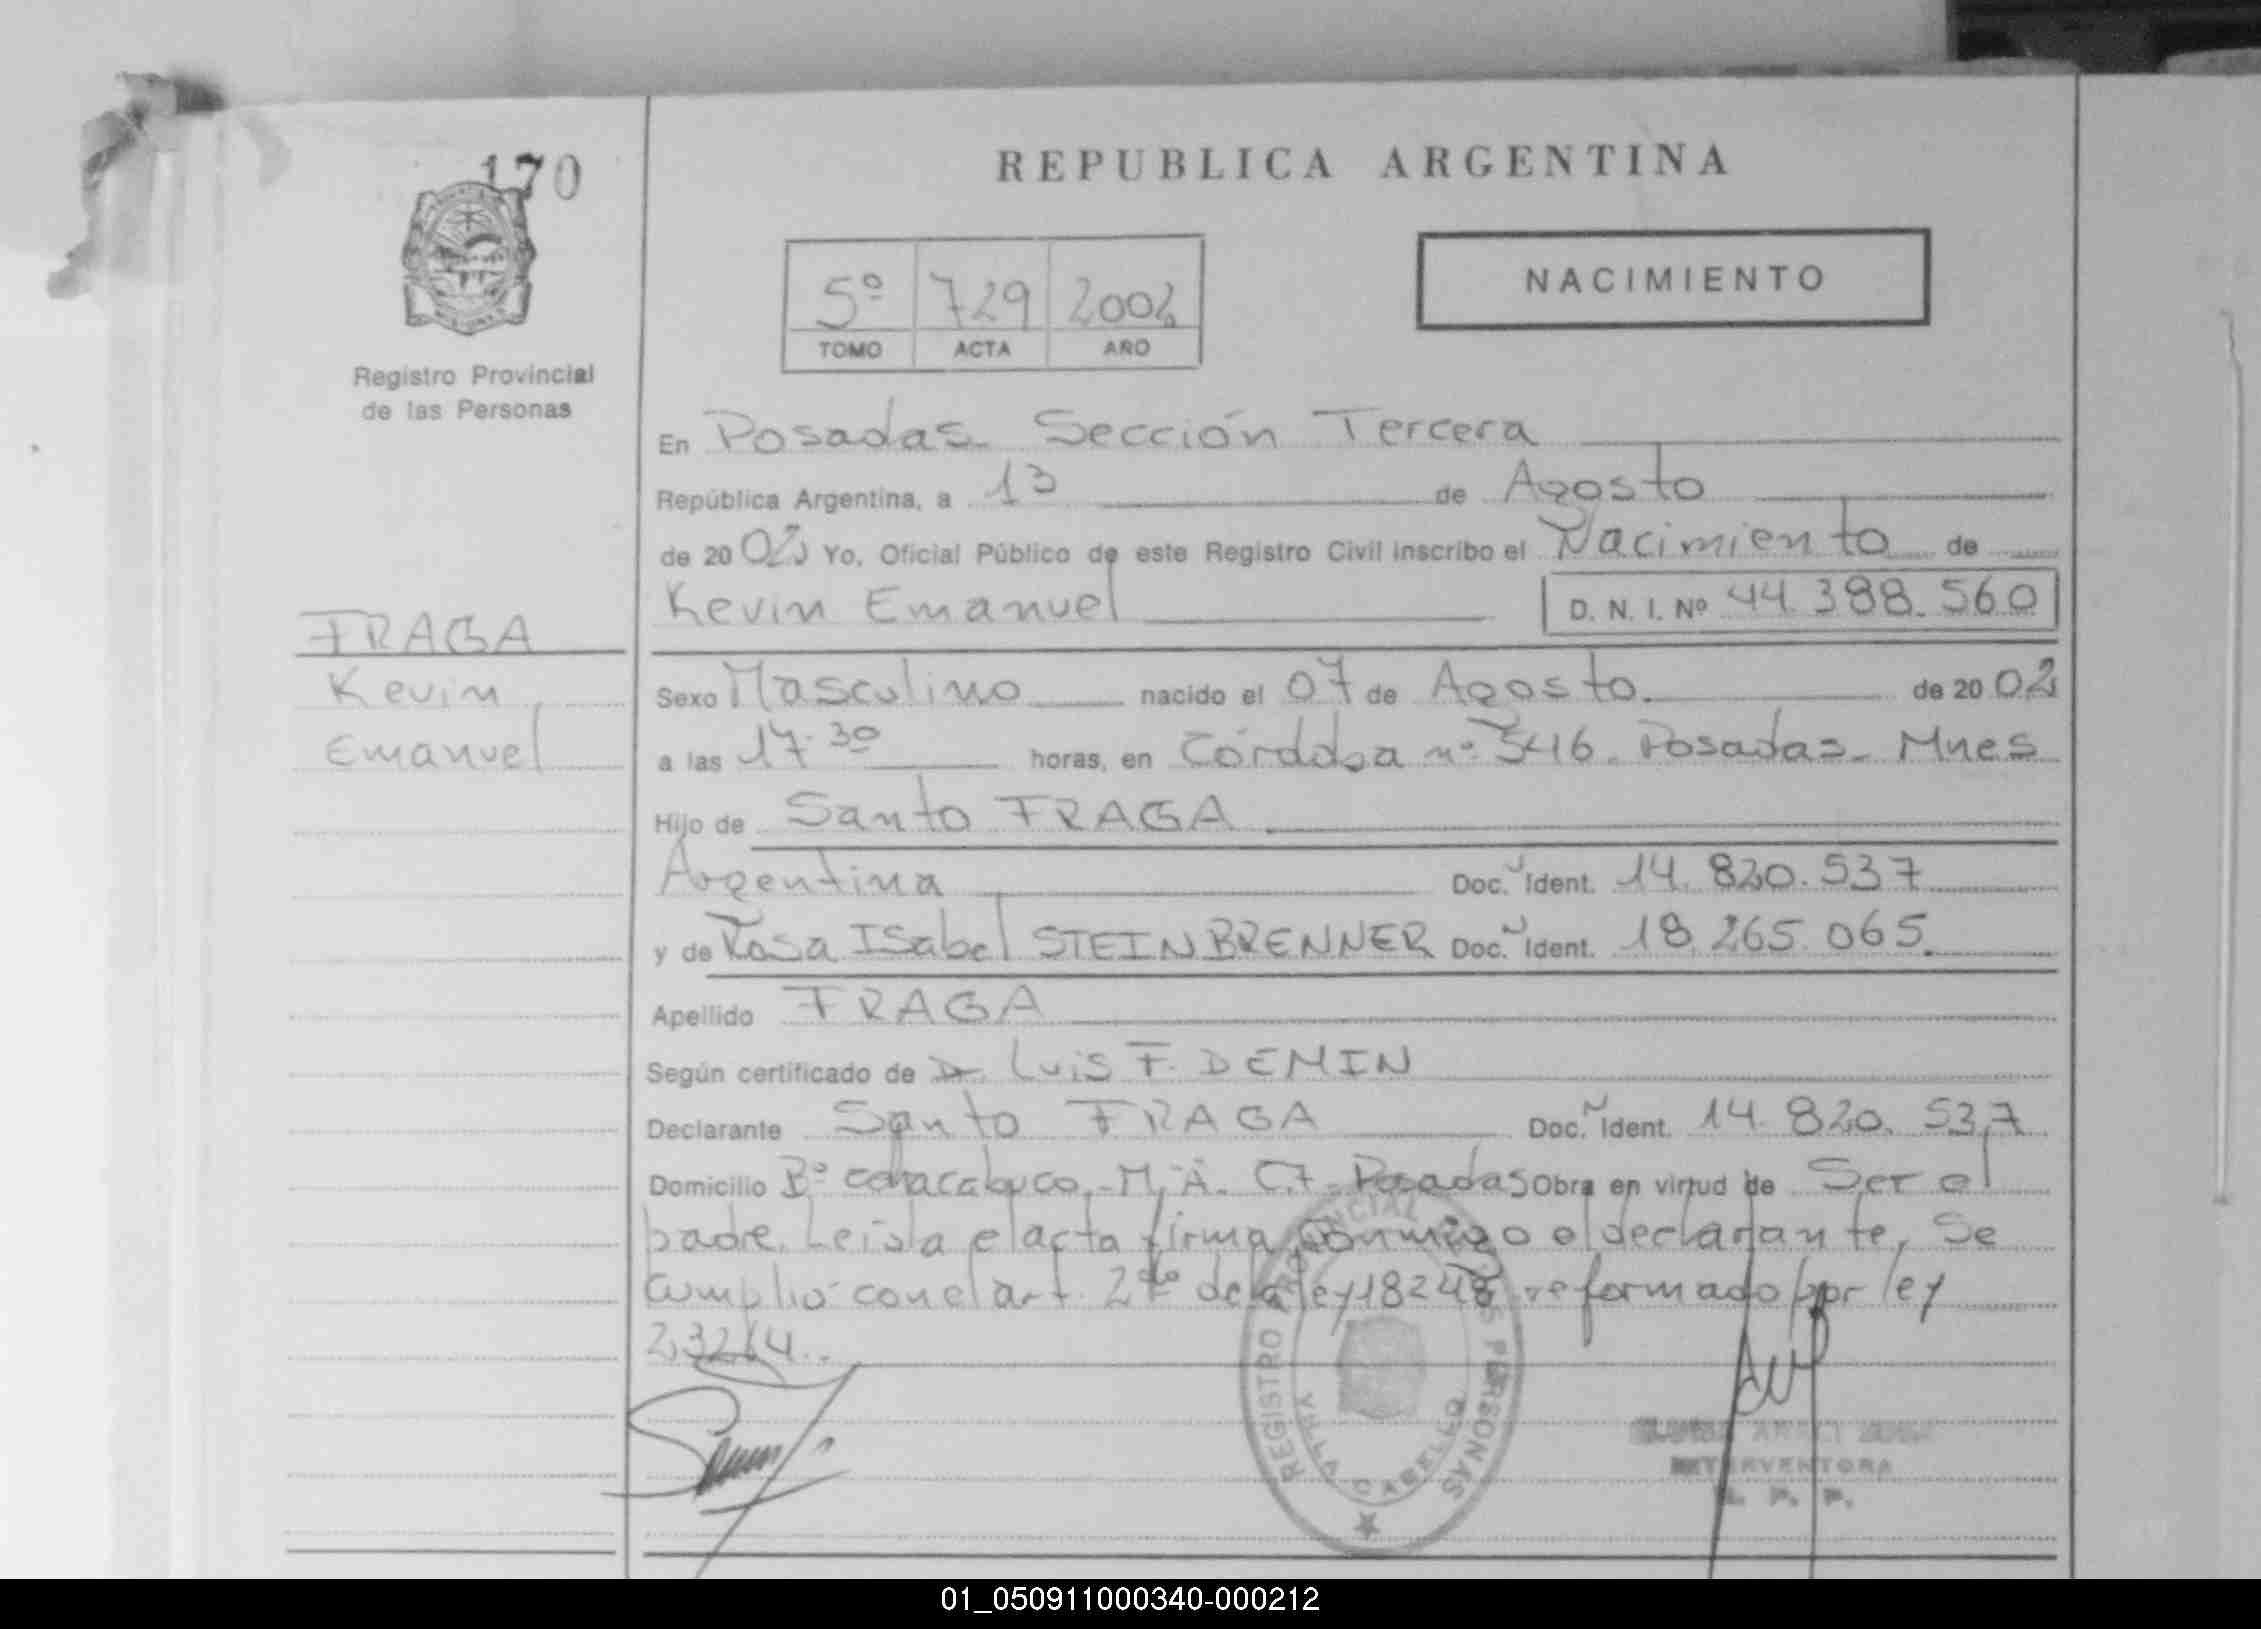 170
REPUBLICA ARGENTINA
NACIMIENTO
5º 729 2002
TOMO ACTA AÑO
Registro Provincial
de las Personas
En Posadas Sección Tercera
República Argentina, a 13 de Agosto
de 2002 Yo, Oficial Público de este Registro Civil inscribo el Nacimiento de
Kevin Emanuel D. N. I. Nº 44.388.560
FRAGA
Kevin
Emanuel
Sexo Masculino nacido el 07 de Agosto de 2002
a las 17.30 horas, en Córdoba nº 546. Posadas. Mnes
Hijo de Santo FRAGA
Argentina Doc. Ident. 14.820.537
y de Rosa Isabel STEINBRENNER Doc. Ident. 18.265.065.
Apellido FRAGA
Según certificado de Dr. Luis F. DEMIN
Declarante Santo FRAGA Doc. Ident. 14.820.537
Domicilio Bº Chacabuco.-M.A. C.7 Posadas Obra en virtud de Ser el
padre. Leida el acta firma conmigo el declarante. Se
cumplió con el art. 2do de la ley 18248 reformado por ley
23264.
REGISTRO PROVINCIAL PERSONAS
CABELLO
INTERVENTORA
R. P. P.
01_050911000340-000212